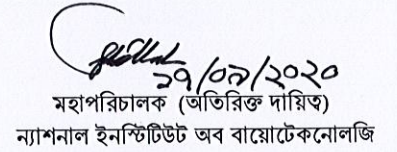 ২৭/০৯/২০২০
মহাপরিচালক (অতিরিক্ত দায়িত্ব)
ন্যাশনাল ইনস্টিটিউট অব বায়োটেকনোলজি